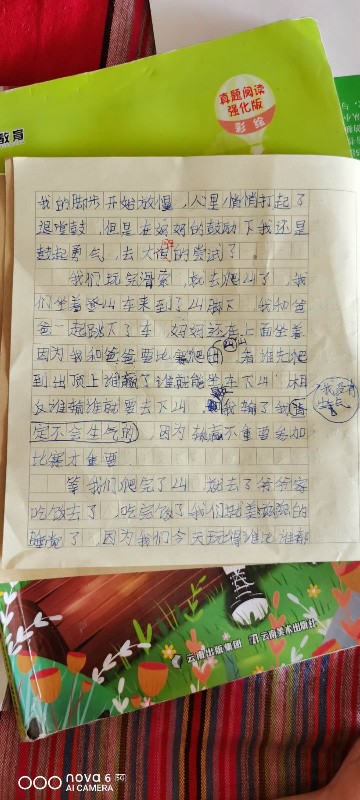 真题阅读
强化版
彩绘
教育
我的脚步开始放慢，心里悄悄打起了
退堂鼓，但是在妈妈的鼓励下我还是
鼓起勇气，去大胆的尝试了
我们玩完滑索，就去爬山了，我
们坐着
车来到了山脚下，我和爸
爸一起跳下了车，妈妈还在上面坐着
因为我和爸爸要比赛爬山，看谁先爬
到山顶上谁赢了谁就能坐车下山，相
反谁输谁就要去下山，
我输了我
我没有
生气
定不会生气的，因为输赢不重要参加
比赛才重要
等我们爬完了山，就去了爷爷家
吃饭去了，吃完饭了我们就美滋滋的
睡觉了，因为我们今天玩得
云南出版集团
云南美术出版社
nova 6 5G
AI CAMERA